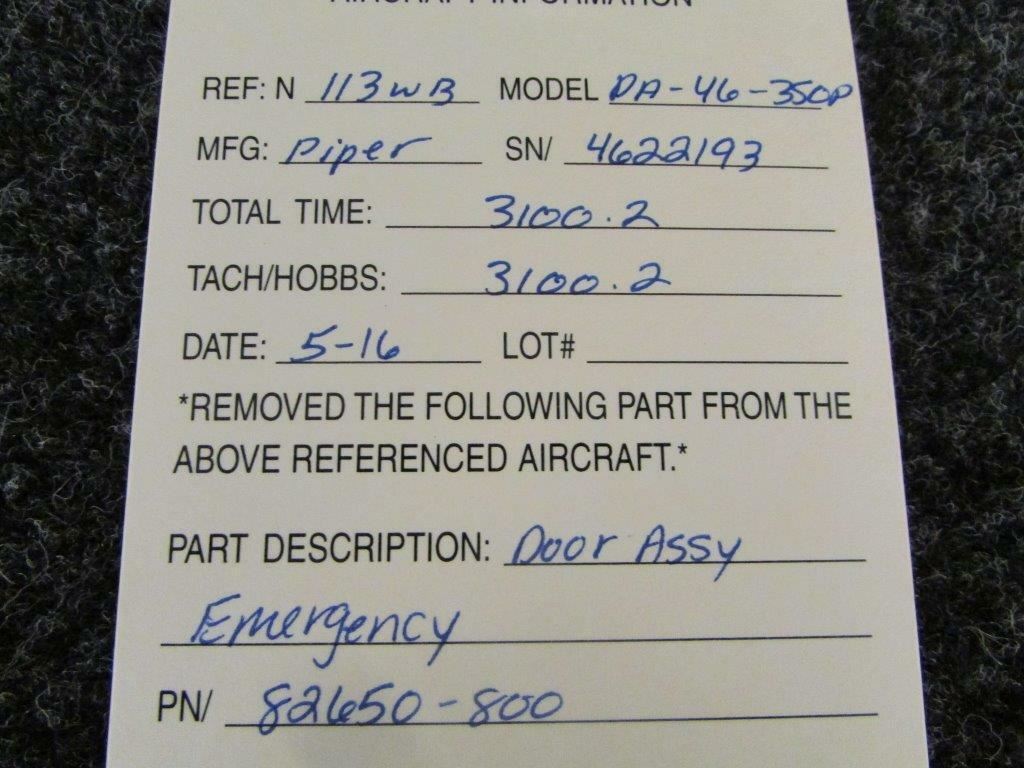 AIRCRAFT INFORMATION
REF: N 113WB MODEL PA-46-350P
MFG: Piper SN/ 4622193
TOTAL TIME: 3100.2
TACH/HOBBS: 3100.2
DATE: 5-16 LOT#
*REMOVED THE FOLLOWING PART FROM THE
ABOVE REFERENCED AIRCRAFT.*
PART DESCRIPTION: Door Assy
Emergency
PN/ 82650-800